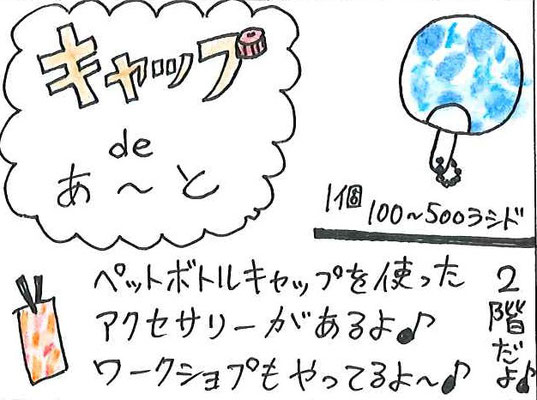 キャップ
de
あ～と
1個 100～500ヨシド
ペットボトルキャップを使った
アクセサリーがあるよ♪
ワークショプもやってるよ～♪
2階だよ♪